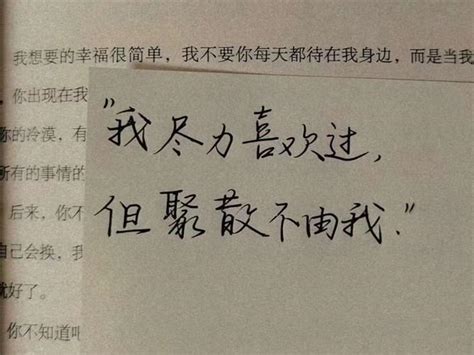 我想要的幸福很简单，我不要你每天都待在我身边，而是当我
你出现在我
你的冷漠，有
所有的事情的
后来，你不
自己会换，我
就好了。
你不知道吧
"我尽力喜欢过，
但聚散不由我."